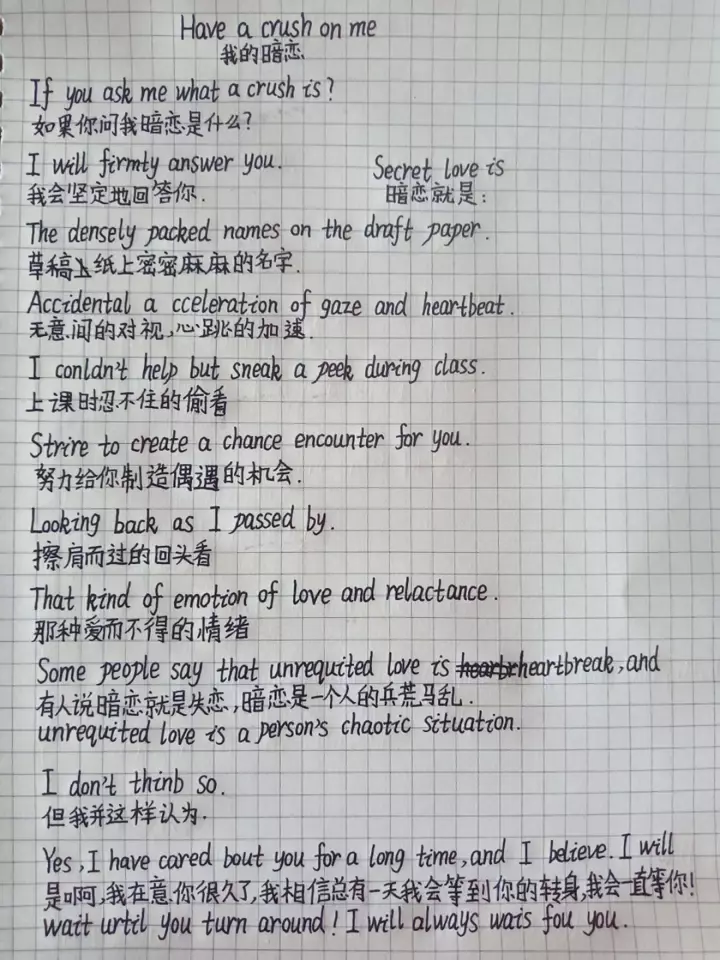 Have a crush on me
我的暗恋
If you ask me what a crush is?
如果你问我暗恋是什么?
I will firmty answer you.
我会坚定地回答你.
Secret love is
暗恋就是:
The densely packed names on the draft paper.
草稿纸上密密麻麻的名字.
Accidental a cceleration of gaze and heartbeat.
无意间的对视,心跳的加速.
I conldn't help but sneak a peek during class.
上课时忍不住的偷看
Strire to create a chance encounter for you.
努力给你制造偶遇的机会.
Looking back as I passed by.
擦肩而过的回头看
That kind of emotion of love and relactance.
那种爱而不得的情绪
Some people say that unrequited love is heartbreak, and
有人说暗恋就是失恋,暗恋是一个人的兵荒马乱.
unrequited love is a person's chaotic situation.
I don't thinb so.
但我并这样认为.
Yes, I have cared bout you for a long time, and I believe. I will
是啊,我在意你很久了,我相信总有一天我会等到你的转身,我会一直等你!
wait urtil you turn around! I will always wais fou you.